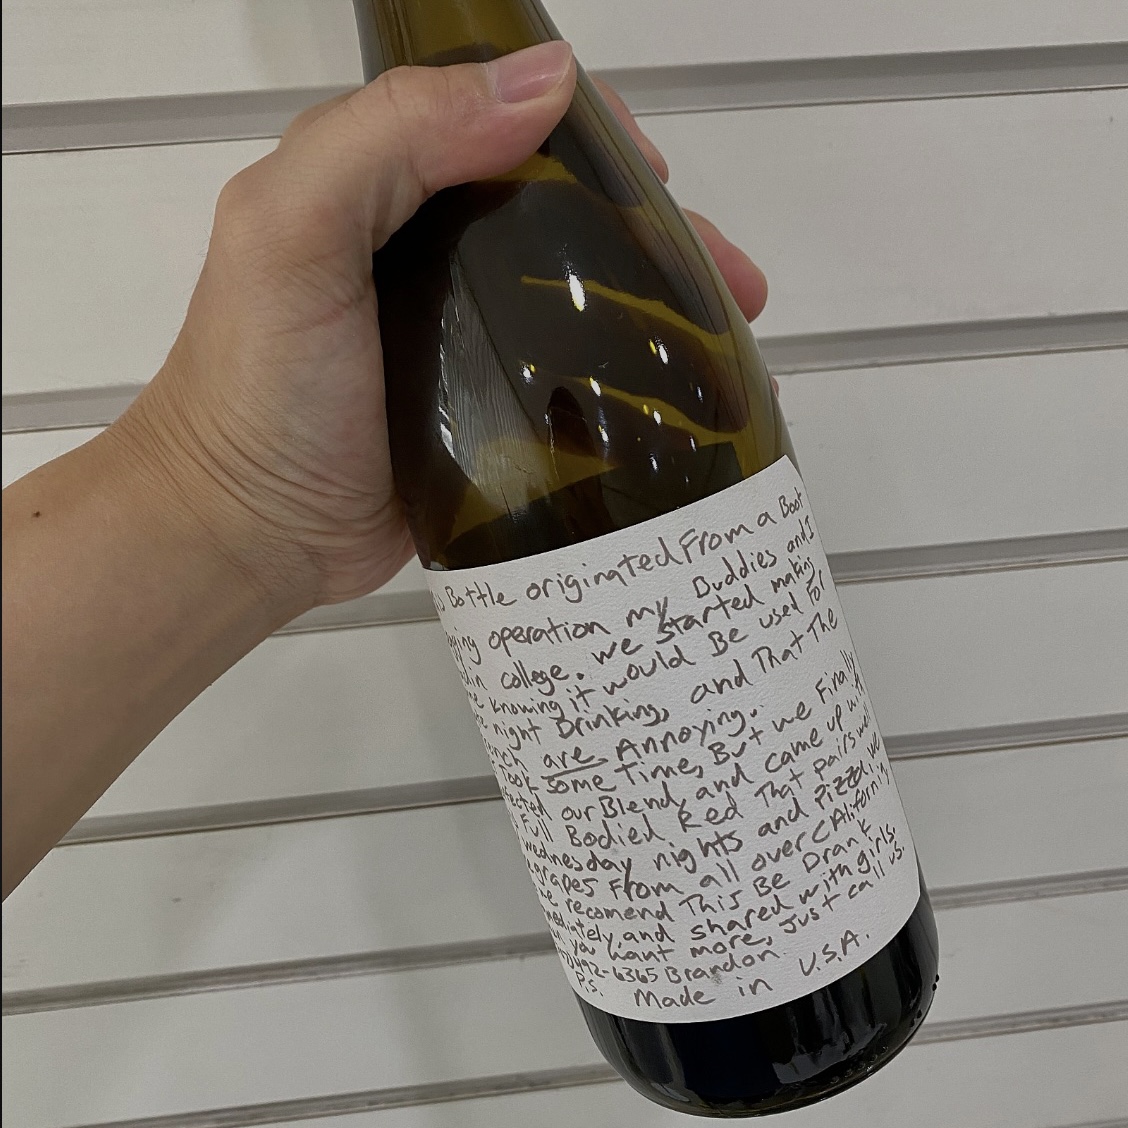 Bottle originated From a Boot
operation my Buddies and I
in college. we started making
knowing it would Be used For
night Drinking, and That The
are Annoying.
Took some time, But we Finally
our Blend, and came up with
Full Bodied Red That pairs well
wednesday nights and Pizza, we
grapes From all over CAlifornia,
we recomend This Be Drank
and shared with girls.
you want more, just call us.
492-6365 Brandon.
P.s. Made in U.S.A.